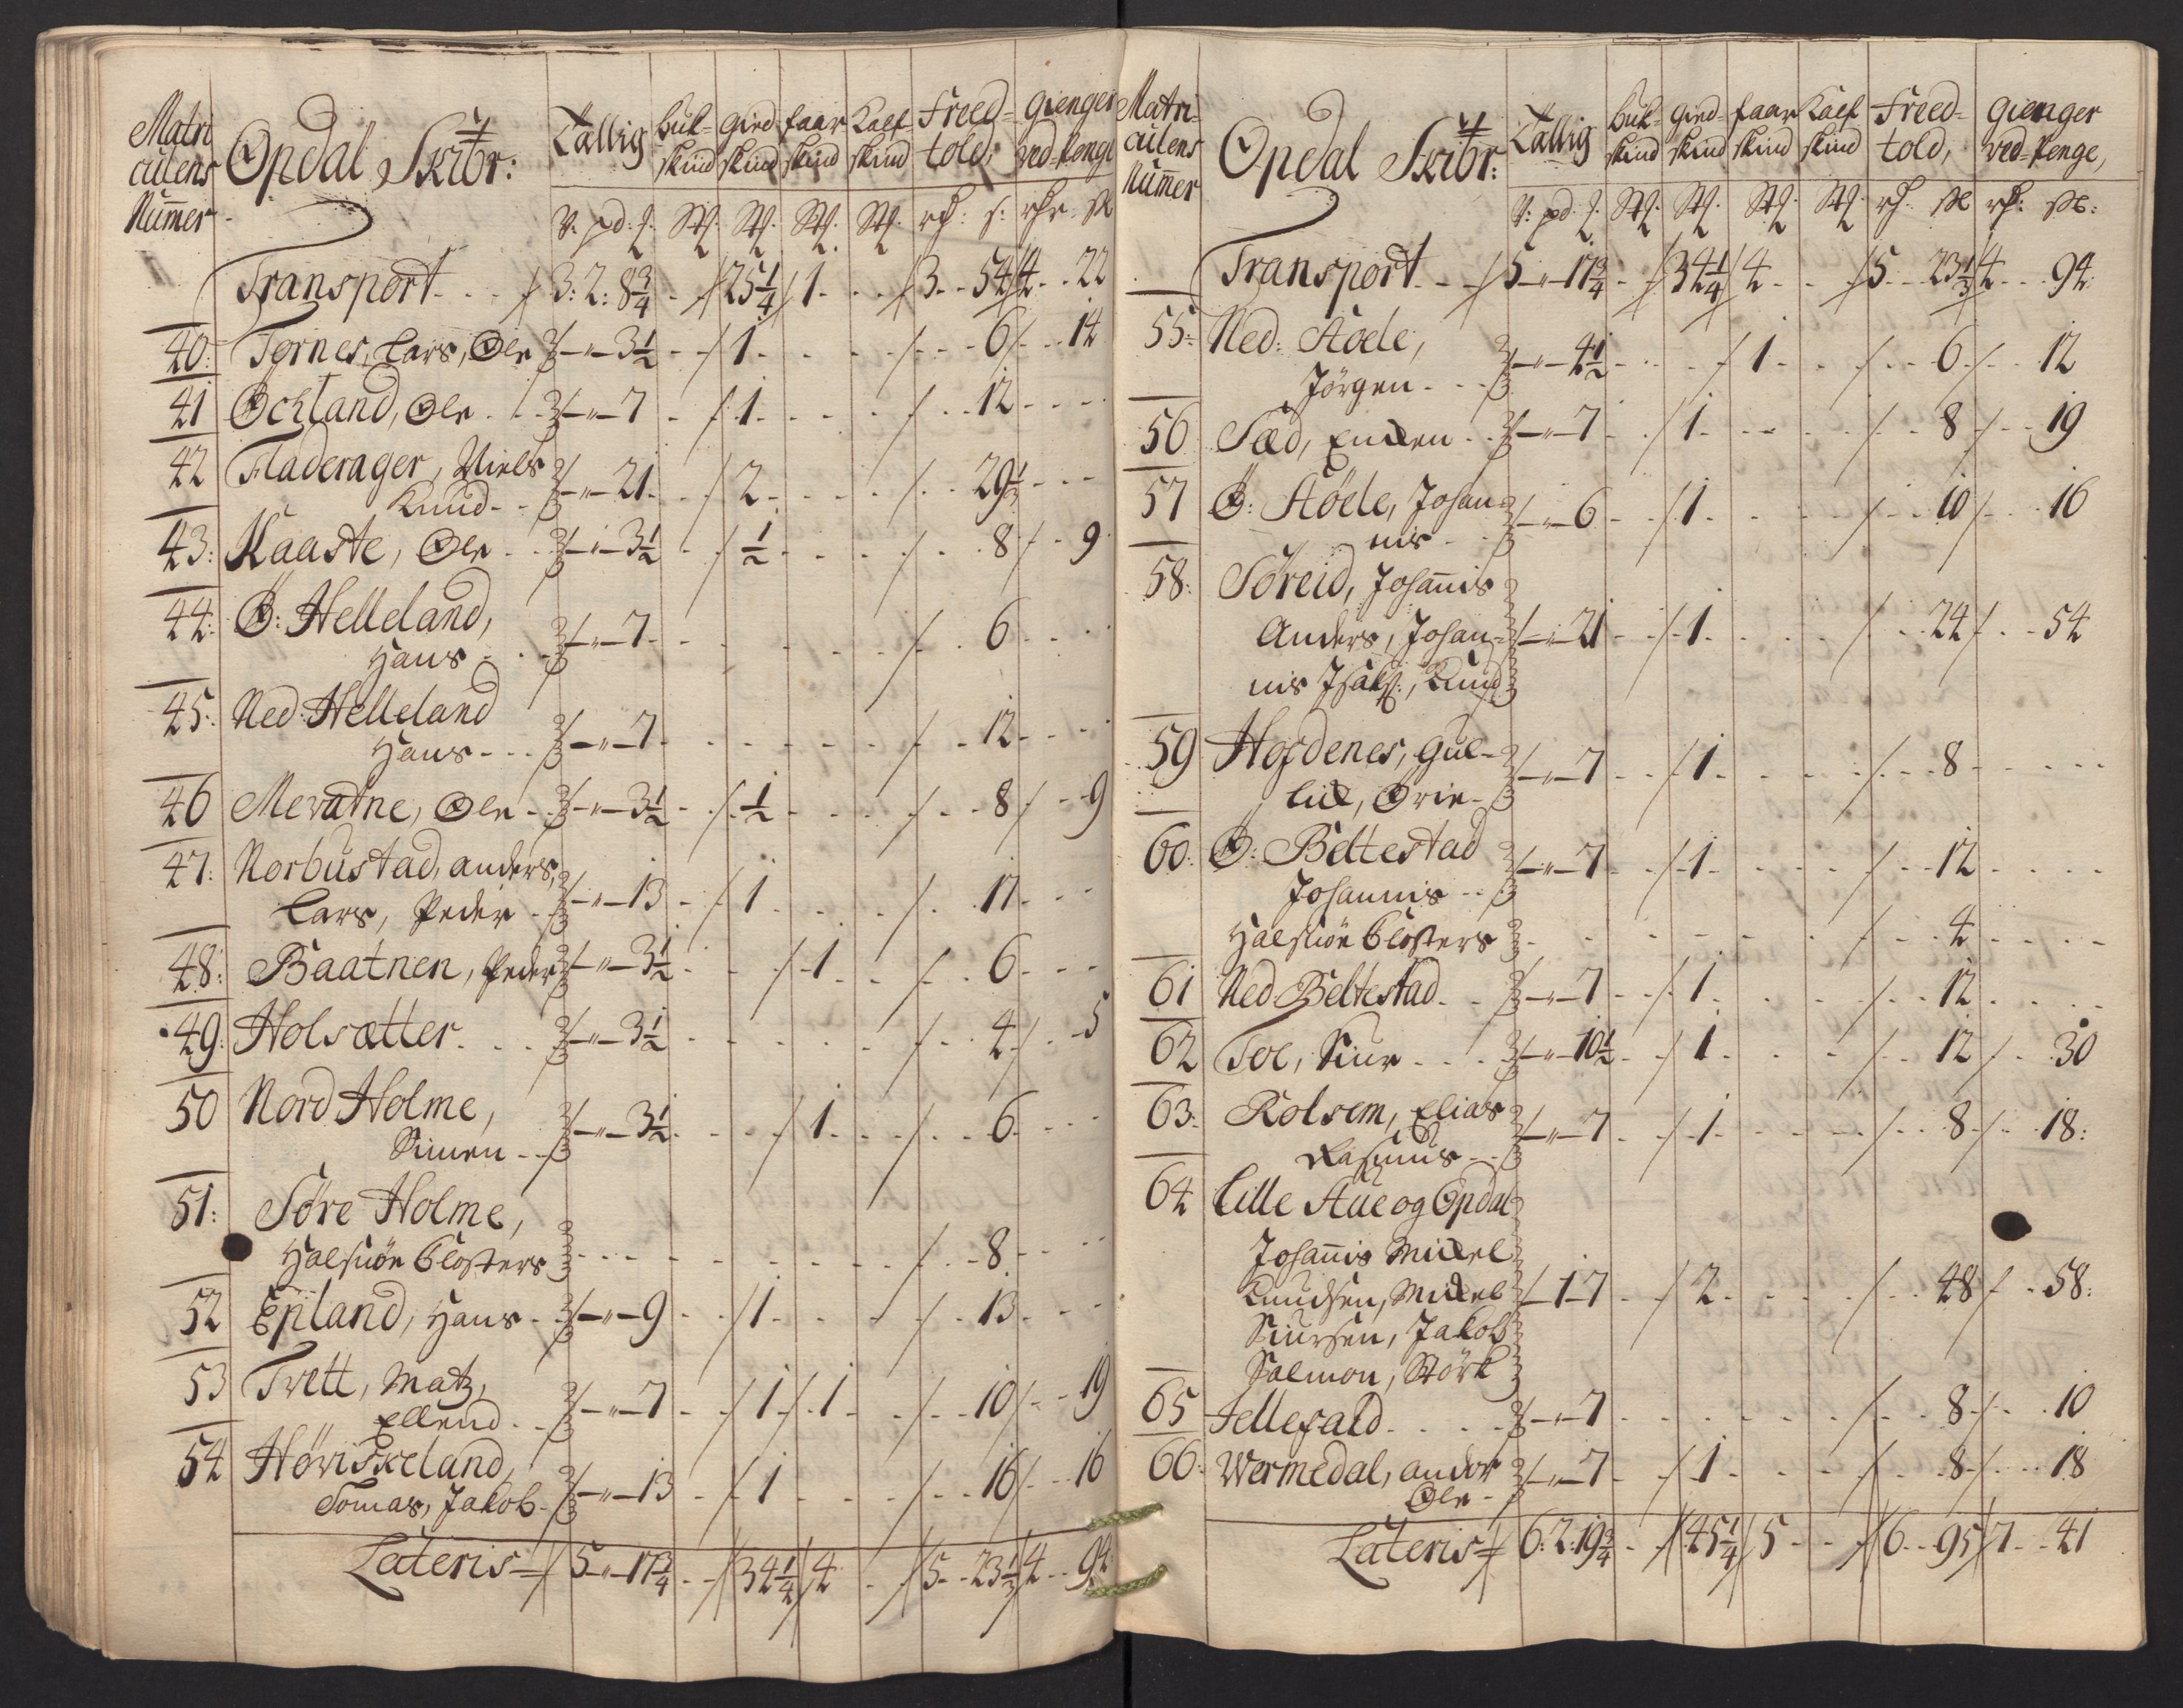 Matri
culens
Numer
Opdal Skibr:
Tallig
Huk-
skind
Gied
skind
faar
skind
Kalf
skind
Freed-
told,
Gienger
ved Penge
V: pd: Stk: Stk: Stk: Stk: rh: s: rhr: sk
Transport - - - 3: 2: 8 3/4 - 25 1/4 1 - - 3 - - 54 4 - - 22
40: Tornes, Lars, Ole - " - 3 1/2 - - 1 - - - - - - 6 - - 14
41 Ochland, Ole - - - - " - 7 - - 1 - - - - - - 12 - - -
42 Fladerager, Niels
Knud - - - " - 21 - - 2 - - - - - - 29 1/3 - - -
43: Kaaste, Ole - - - " - 3 1/2 - - 1/2 - - - - - 8 - - 9
44: Ø: Helleland,
Hans - - - " - 7 - - - - - - 6 - - -
45: Ned: Helleland
Hans - - - - " - 7 - - - - - - 12 - - -
46 Mevatne, Ole - - - " - 3 1/2 - - 1/2 - - - - - 8 - - 9
47: Norbustad, anders,
Lars, Peder - - - " - 13 - - 1 - - - - - 17 - - -
48: Baatnen, Peder - " - 3 1/2 - - - 1 - - - - 6 - - -
49: Holsætter - - - - " - 3 1/2 - - - - - - - 4 - - 5
50 Nord Holme,
Simen - - - " - 3 1/2 - - - 1 - - - - 6 - - -
51: Søre Holme,
Halsnön Closters - - - - - - - - - 8 - - -
52 Epland, Hans - - - " - 9 - - 1 - - - - 13 - - -
53 Tvett, Matz,
Ellend - - - " - 7 - - 1 - 1 - - - - 10 - - 19
54 Høviskeland,
Tomas, Jakob - - " - 13 - - 1 - - - - - 16 - - 16
Lateris = 5 - " - 17 3/4 - - 34 1/4 4 - 5 - - 23 1/3 4 - - 94
Matri-
culens
Numer
Opdal Skibr:
Tallig
Huk-
skind
Gied-
skind
faar
skind
Kalf
skind
Freed-
told,
Gienger
ved-Penge,
V: pd: Stk: Stk: Stk: Stk: rh: sk rh: sk:
Transport - - - 5 - " - 17 3/4 - - 34 1/4 4 - - 5 - - 23 1/3 4 - - 94
55: Ned: Aaele,
Jörgen - - - " - 4 1/2 - - - 1 - - - 6 - - 12
56 Sæd, - - - " - 7 - - 1 - - - - - 8 - - 19
57 Ø: Aöele, Johan-
nis - - - " - 6 - - 1 - - - - - 10 - - 16
58: Søreid, Johannis
Anders, Johan- - " - 21 - - 1 - - - - - 24 - - 54
nis Isaks:, Knud
59 Hofdenes, Gul-
lik, Brite - - " - 7 - - 1 - - - - - 8 - - -
60: Ø: Beltestad
Johannis - - - " - 7 - - 1 - - - - - 12 - - -
Halsnön Closters - - - - - - - - 4 - - -
61 Ned Beltestad - - - " - 7 - - 1 - - - - - 12 - - -
62 Toe, Siur - - - - " - 10 1/2 - - 1 - - - - - 12 - - 30
63: Rolsem, Elias
Rasmus - - - " - 7 - - 1 - - - - - 8 - - 18:
64 Lille Aae og Opdal
Johannis Mikel
Knudsen, Mikel - 1 - 7 - - 2 - - - - - 48 - - 58:
Siursen, Jakob
Salmon, Störk
65 Fellefald - - - - " - 7 - - - - - - - 8 - - 10
66: Wermedal, andor
Ole - - - " - 7 - - 1 - - - - - 8 - - 18
Lateris = 6: 2: 19 3/4 - - 45 1/4 5 - - 6 - - 95 7 - - 41